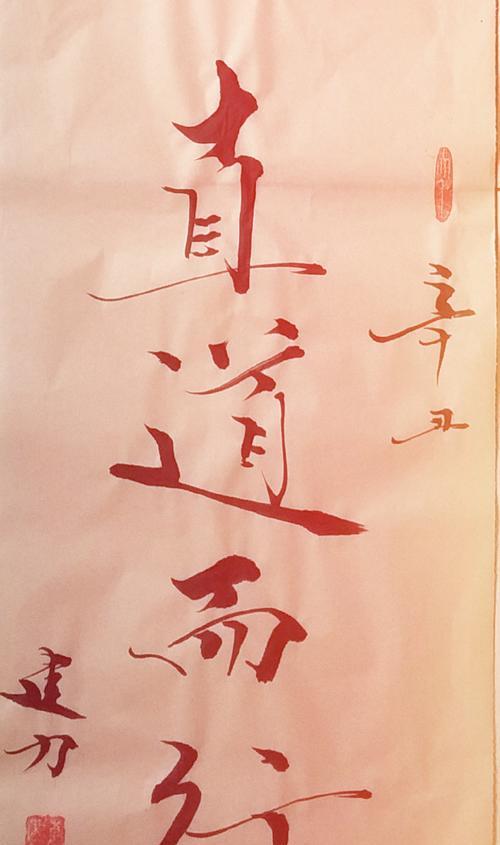 辛丑
直道而行
建